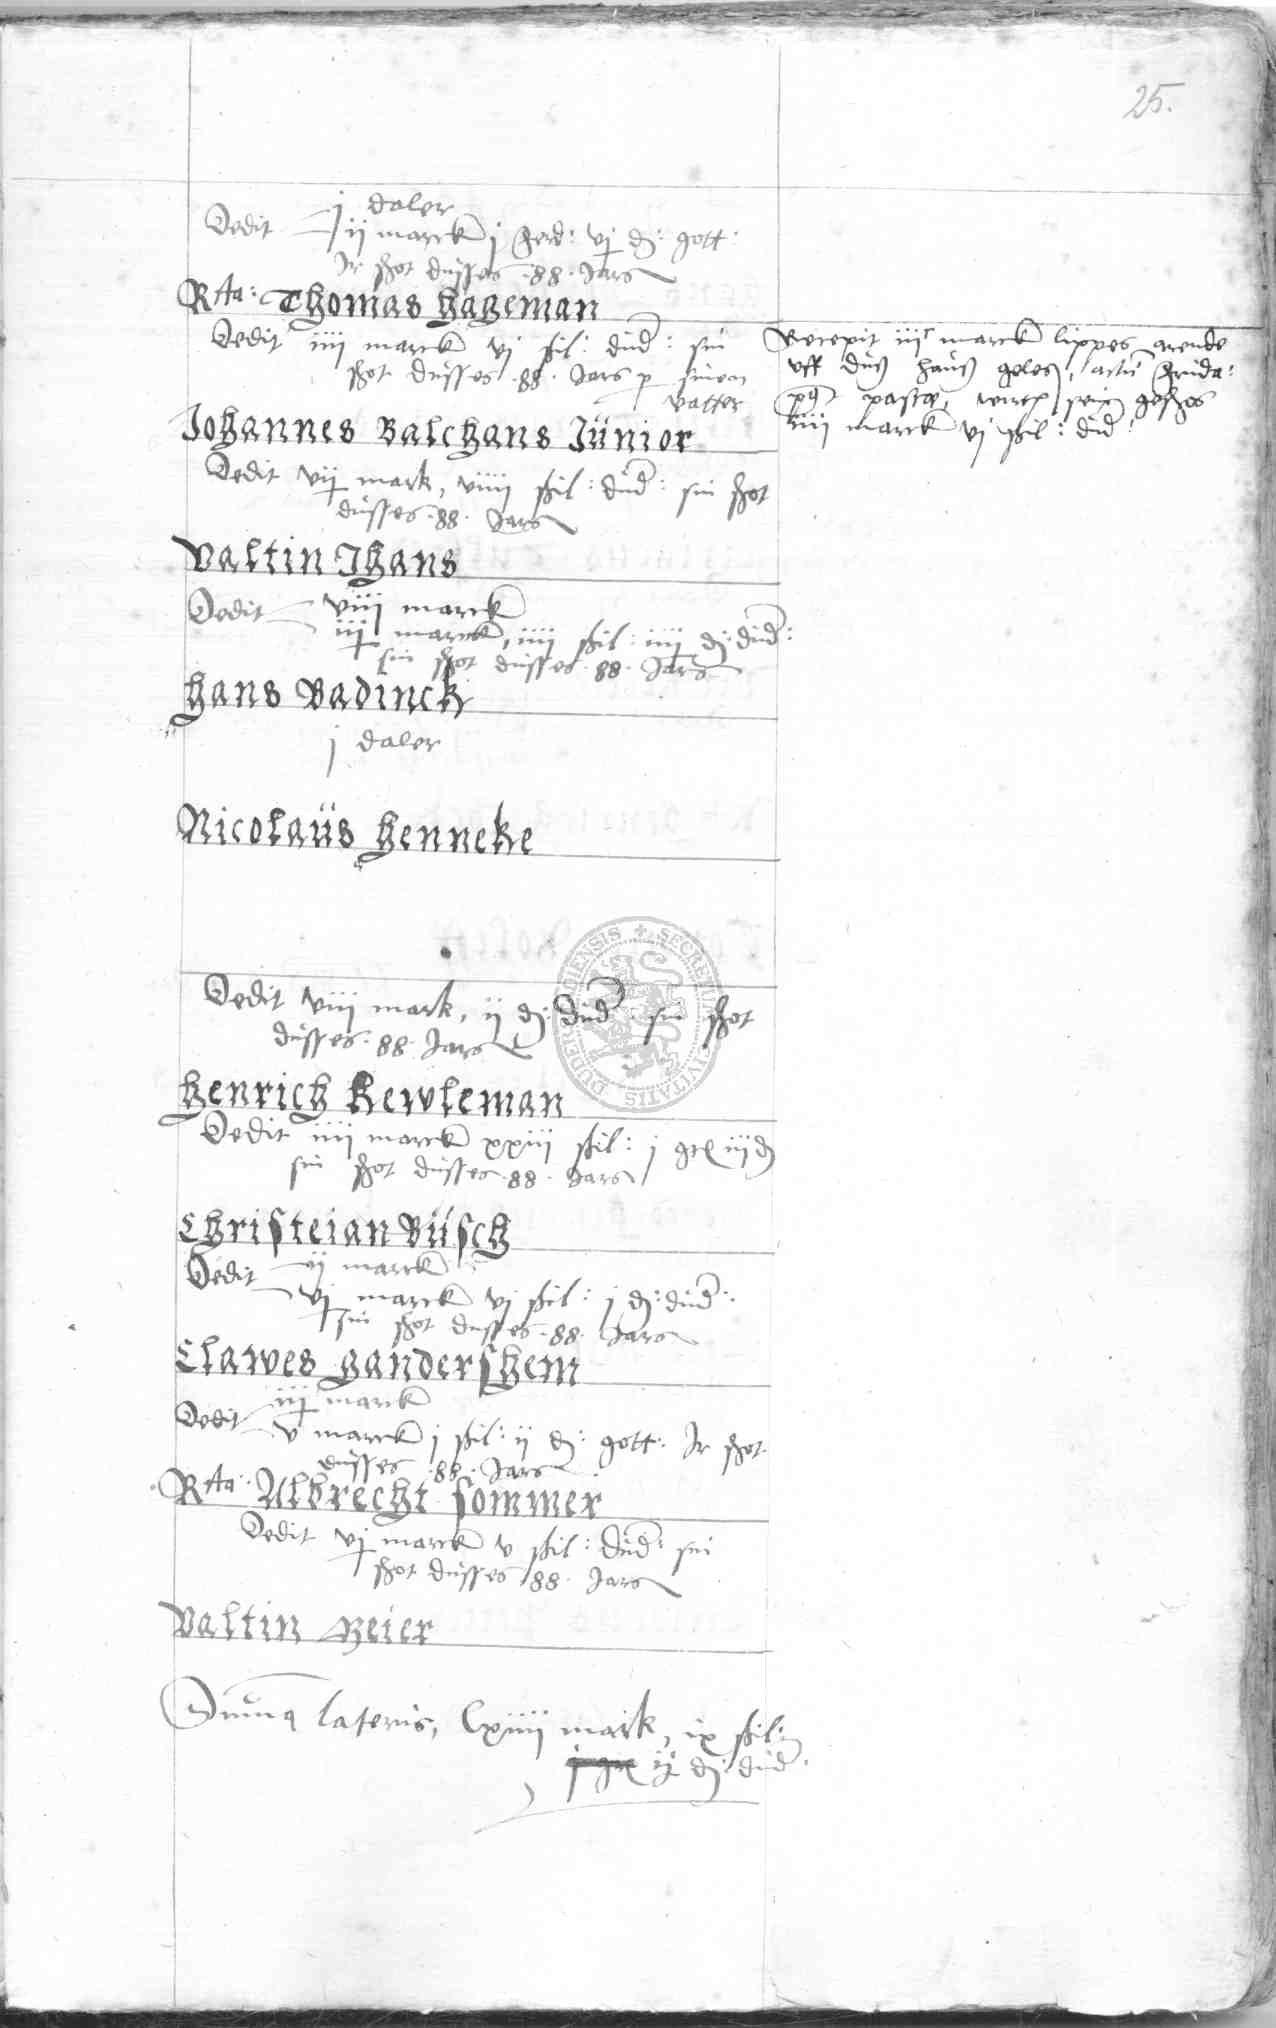 25.
j daler
Dedit ij marck j ferd: vj d: gott:
Ir schot dusses .88. Jars
Rta: Thomas Hageman
Dedit iiij marck vj schil: dud: sin
schot dusses .88. Jars p sinen
vatter
Recepit iij marck
uff dus haus
pascæ
iiij marck vj schil: dud:
Johannes Balchans Jünior
Dedit vij mark, viiij schil: dud: sin schot
dusses .88. Jars
Valtin Jhans
Dedit viij marck
iij marck, iiij schil: iiij d: dud:
sin schot dusses .88. Jars
Hans Badinck
j daler
Nicolaüs Henneke
Dedit viij mark, ij d: dud: sin schot
dusses .88. Jars
Henrich Kewleman
Dedit iiij marck xxiij schil: j iij d
sin schot dusses .88. Jars
Christeian Büsch
Dedit vj marck
vj marck vj schil: j d: dud:
sin schot dusses .88. Jars
Clawes Gandershem
iij marck
Dedit v marck j schil: ij d: gott: Ir schot
dusses .88. Jars
Rta: Albrecht Sommer
Dedit vj marck v schil: dud: sin
schot dusses .88. Jars
Valtin Beier
Suma lateris, lxiiij mark, ix schil:
ij d: dud:
SECRETUM CIVITATIS DUDERSTADIENSIS